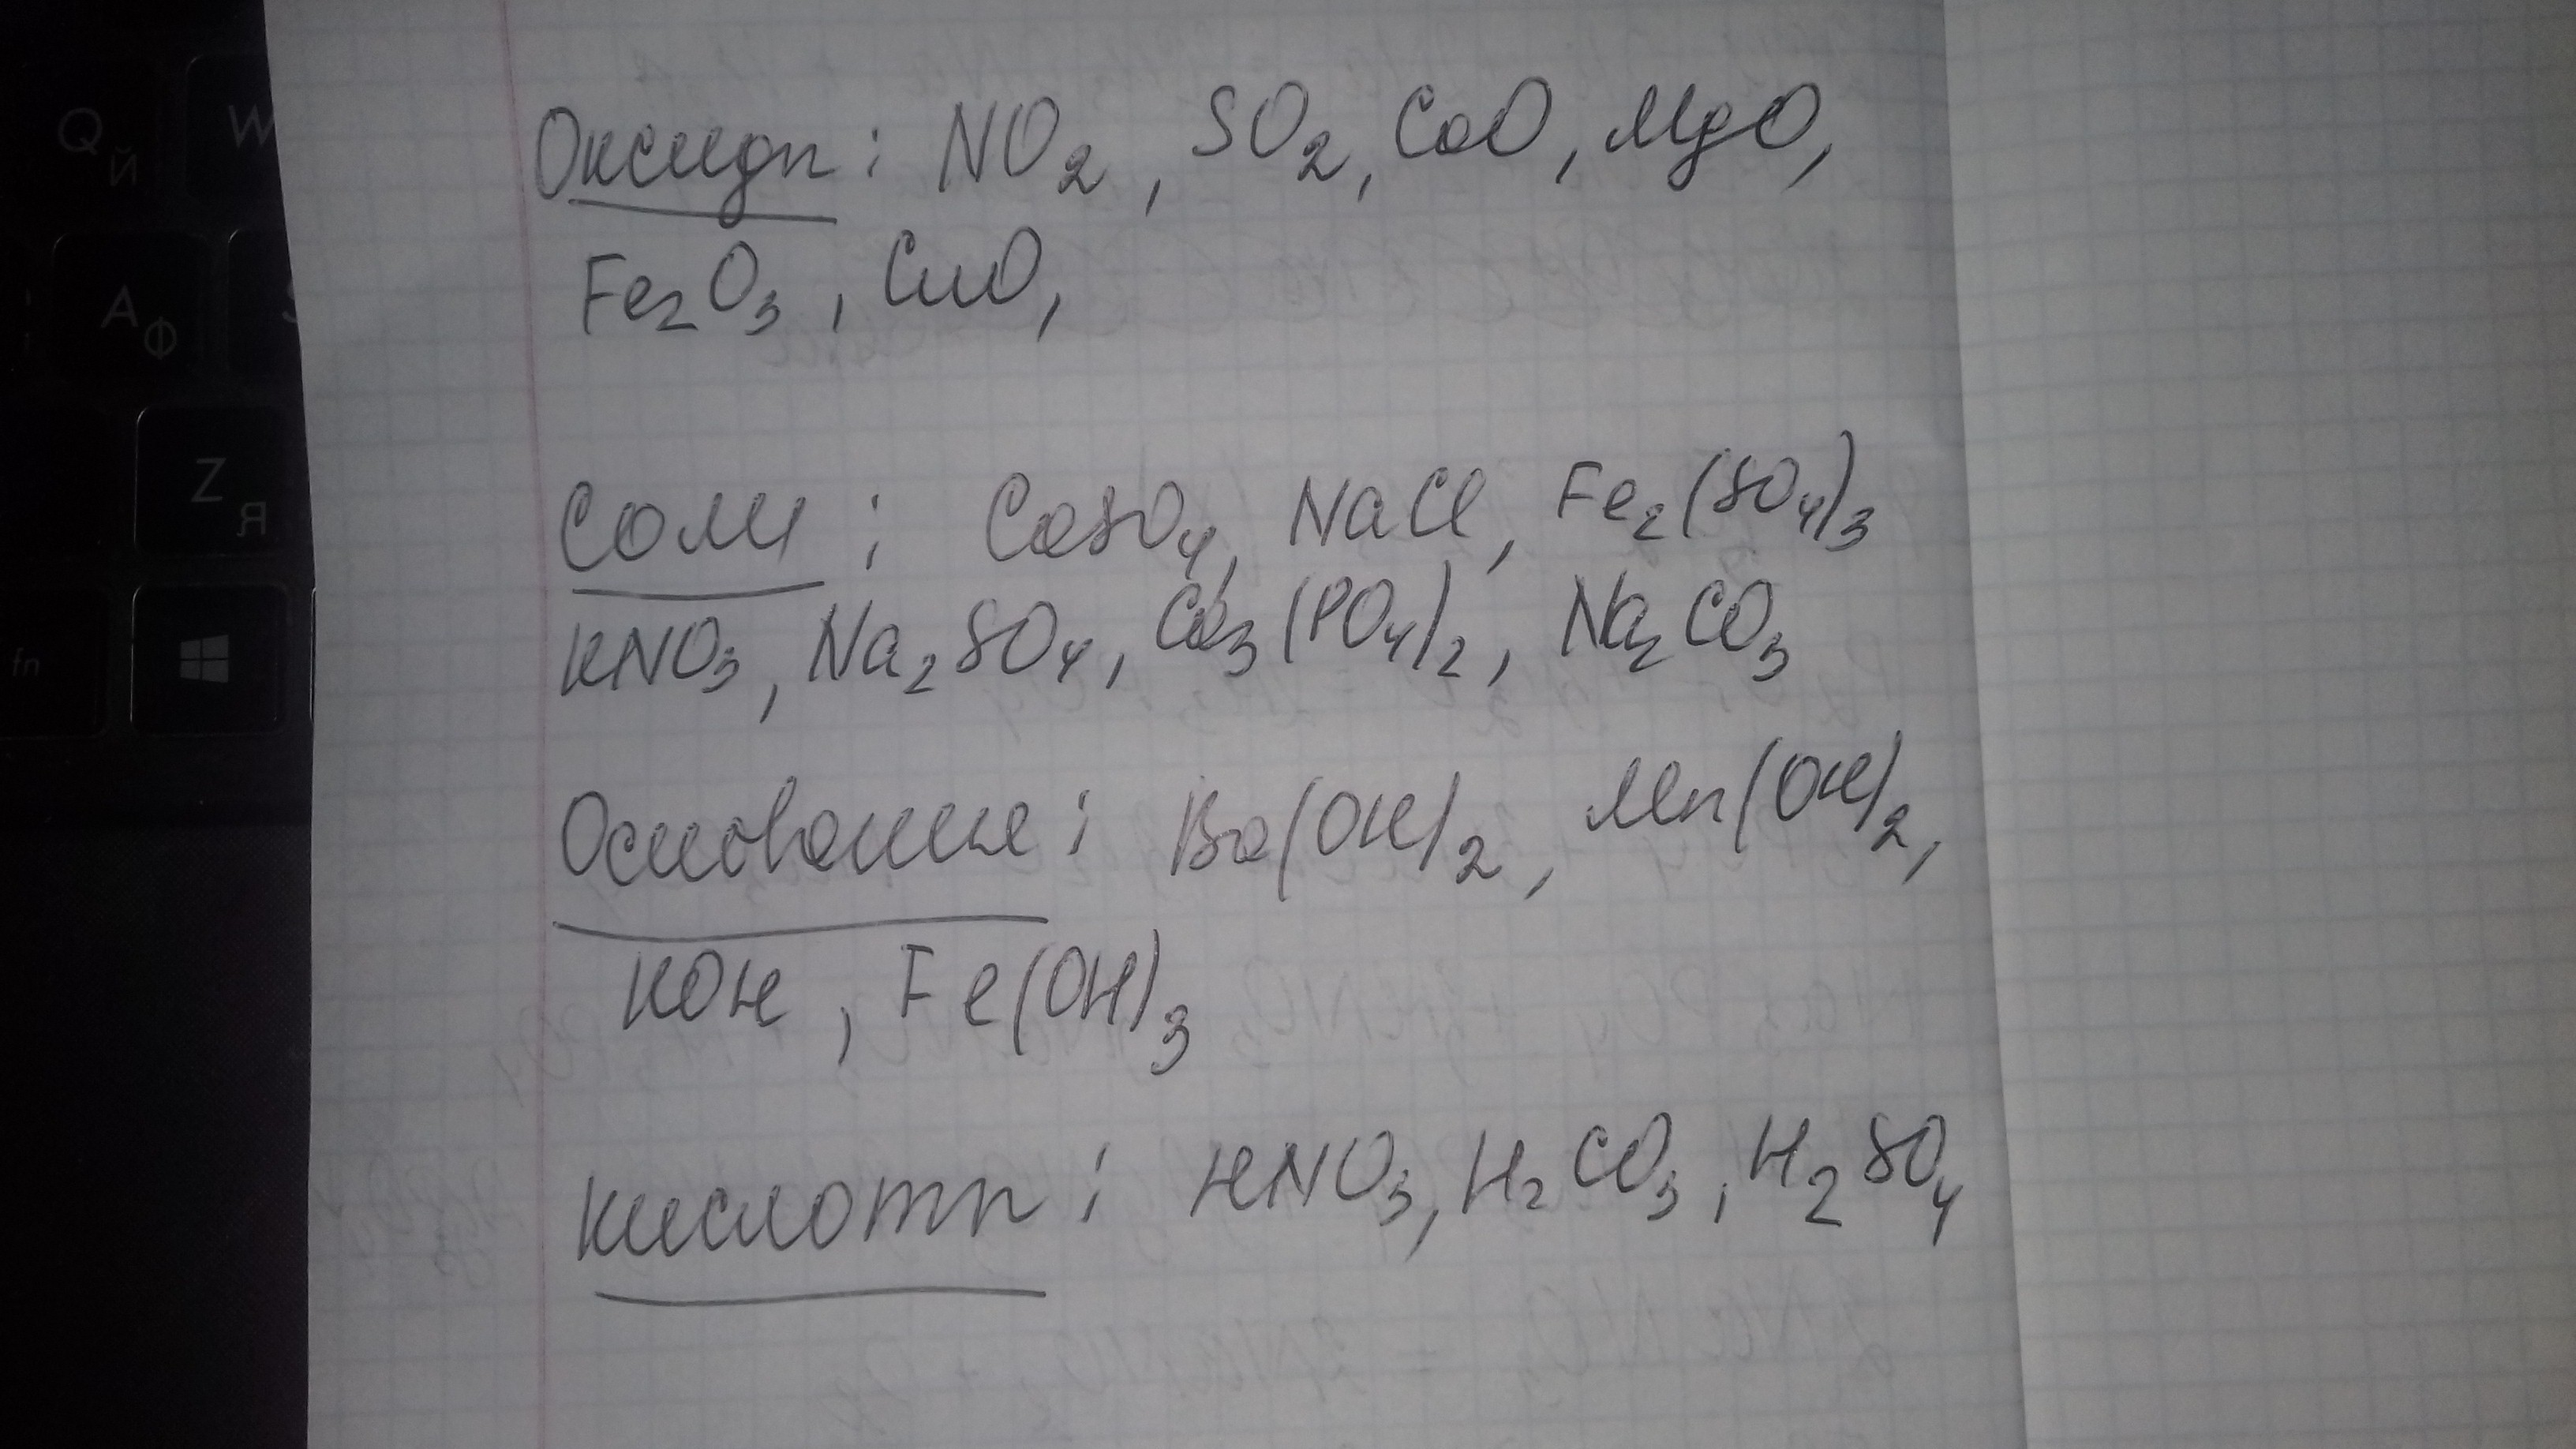 Q Й W
Оксиды: NO2, SO2, CaO, MgO,
Fe2O3, CuO,
А Ф
Соли: CaSO4, NaCl, Fe2(SO4)3
Z Я
KNO3, Na2SO4, Ca3(PO4)2, Na2CO3
fn
Основание: Ba(OH)2, Mn(OH)2,
KOH, Fe(OH)3
Кислоты: HNO3, H2CO3, H2SO4